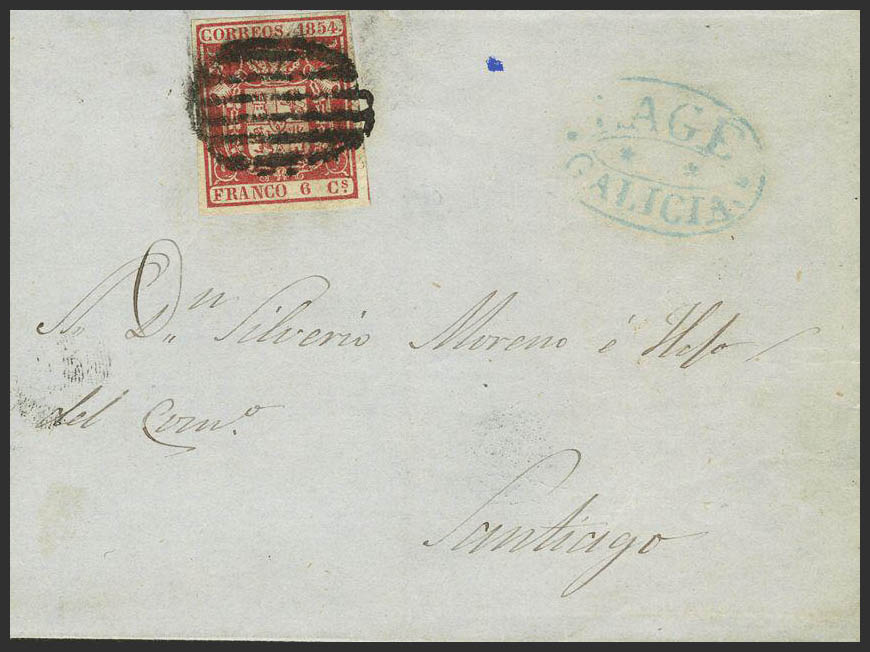 CORREOS. 1854.
FRANCO 6 Cs
LAGE
GALICIA
Sr. Dn Silverio Moreno é Hijo
del Como.
Santiago